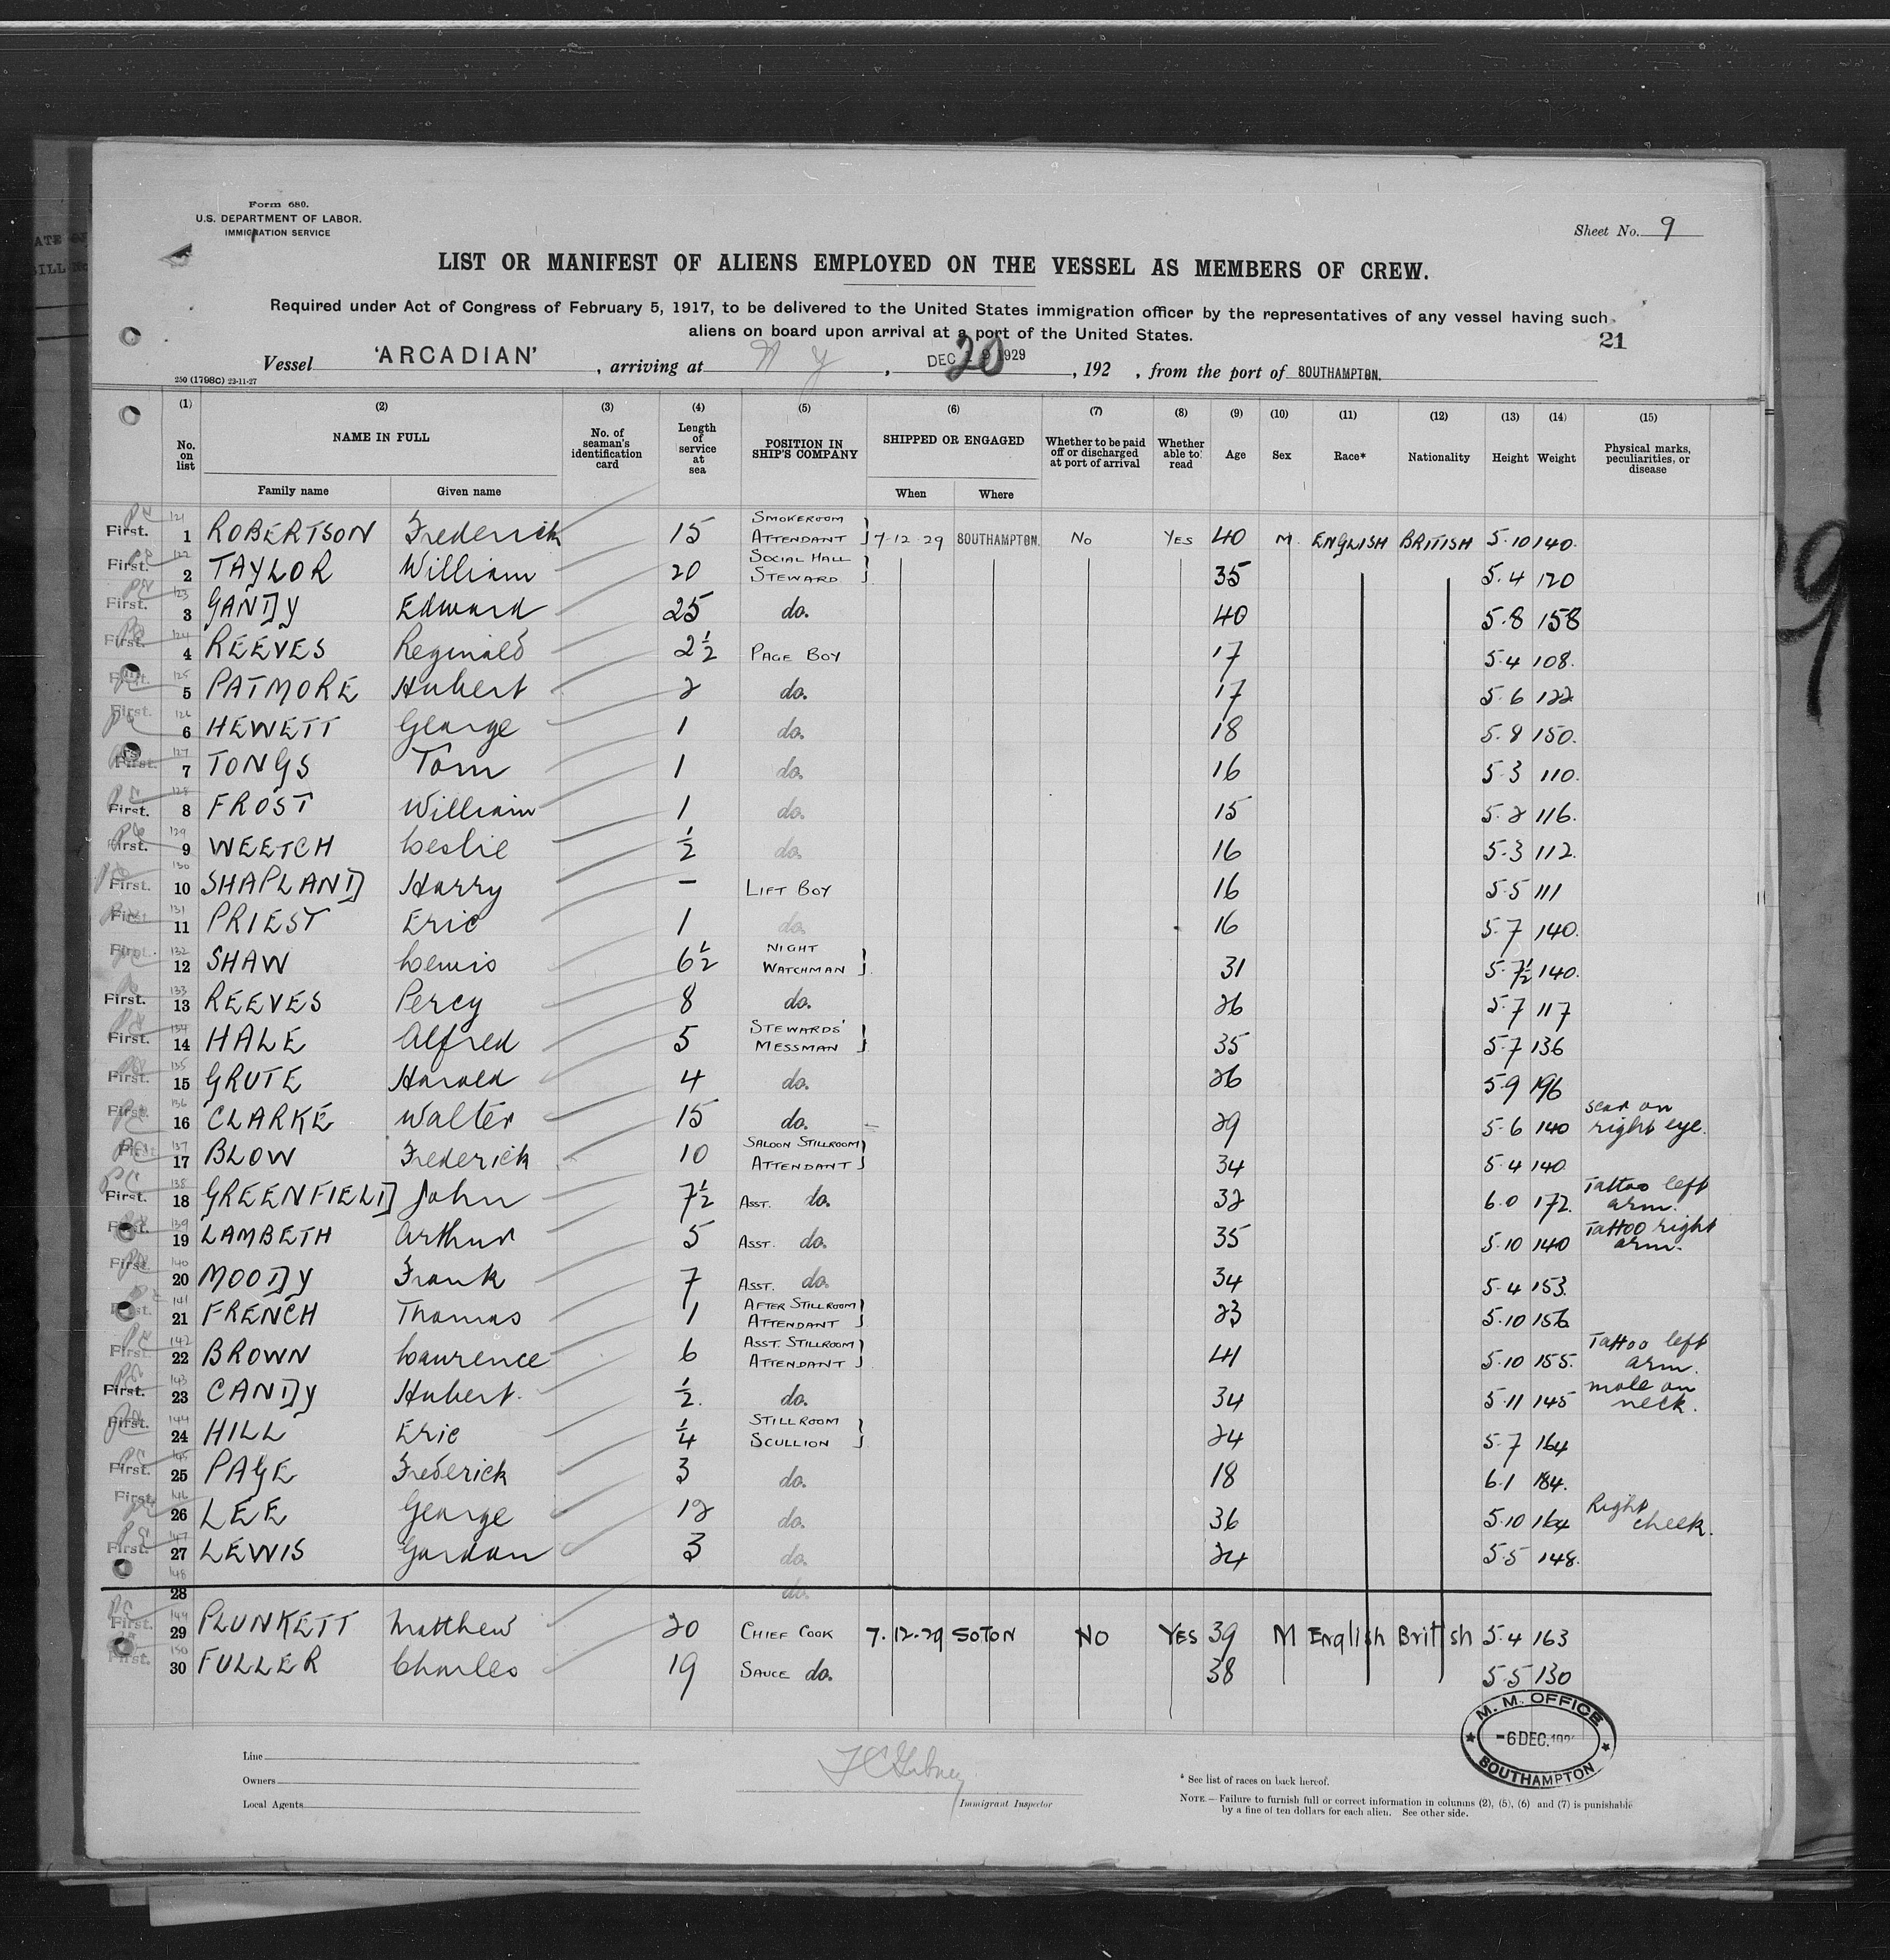 Form 680.
U.S. DEPARTMENT OF LABOR.
IMMIGRATION SERVICE
Sheet No. 9
LIST OR MANIFEST OF ALIENS EMPLOYED ON THE VESSEL AS MEMBERS OF CREW.
Required under Act of Congress of February 5, 1917, to be delivered to the United States immigration officer by the representatives of any vessel having such
aliens on board upon arrival at a port of the United States.
21
Vessel 'ARCADIAN', arriving at N Y, DEC 20 1929, 192 , from the port of SOUTHAMPTON.
250 (1798C) 22-11-27
(1) (2) (3) (4) (5) (6) (7) (8) (9) (10) (11) (12) (13) (14) (15)
No. on list NAME IN FULL Family name Given name No. of seaman's identification card Length of service at sea POSITION IN SHIP'S COMPANY SHIPPED OR ENGAGED When Where Whether to be paid off or discharged at port of arrival Whether able to read Age Sex Race* Nationality Height Weight Physical marks, peculiarities, or disease
First. 121 1 ROBERTSON Frederick 15 SMOKEROOM ATTENDANT 7-12-29 SOUTHAMPTON. No YES 40 M. ENGLISH BRITISH 5.10 140.
First. 122 2 TAYLOR William 20 SOCIAL HALL STEWARD 35 5.4 120
First. 123 3 GANDY Edward 25 do. 40 5.8 158
First. 124 4 REEVES Reginald 2½ PAGE BOY 17 5.4 108.
First. 125 5 PATMORE Hubert 2 do. 17 5.6 122
First. 126 6 HEWETT George 1 do. 18 5.8 150.
First. 127 7 TONGS Tom 1 do. 16 5.3 110.
First. 128 8 FROST William 1 do. 15 5.2 116.
First. 129 9 WEETCH Leslie ½ do. 16 5.3 112.
First. 130 10 SHAPLAND Harry – LIFT BOY 16 5.5 111
First. 131 11 PRIEST Eric 1 do. 16 5.7 140.
First. 132 12 SHAW Lewis 6½ NIGHT WATCHMAN 31 5.7½ 140.
First. 133 13 REEVES Percy 8 do. 26 5.7 117
First. 134 14 HALE Alfred 5 STEWARDS' MESSMAN 35 5.7 136
First. 135 15 GRUTE Harold 4 do. 26 5.9 196
First. 136 16 CLARKE Walter 15 do. 29 5.6 140 scar on right eye.
First. 137 17 BLOW Frederick 10 SALOON STILLROOM ATTENDANT 34 5.4 140
First. 138 18 GREENFIELD John 7½ ASST. do. 32 6.0 172. Tattoo left arm.
First. 139 19 LAMBETH Arthur 5 ASST. do. 35 5.10 140 Tattoo right arm.
First. 140 20 MOODY Frank 7 ASST. do. 34 5.4 153.
First. 141 21 FRENCH Thomas 1 AFTER STILLROOM ATTENDANT 23 5.10 156
First. 142 22 BROWN Laurence 6 ASST. STILLROOM ATTENDANT 41 5.10 155. Tattoo left arm.
First. 143 23 CANDY Hubert. ½. do. 34 5.11 145 mole on neck.
First. 144 24 HILL Eric ¼ STILLROOM SCULLION 24 5.7 164
First. 145 25 PAGE Frederick 3 do. 18 6.1 184.
First. 146 26 LEE George 12 do. 36 5.10 164 Right cheek.
First. 147 27 LEWIS Gordon 3 do. 24 5.5 148.
148 28 do.
First. 149 29 PLUNKETT Matthew 20 CHIEF COOK 7.12.29 SOTON NO YES 39 M English British 5.4 163
First. 150 30 FULLER Charles 19 SAUCE do. 38 5.5 130
M. M. OFFICE
-6 DEC. 192
SOUTHAMPTON
Line
Owners
Local Agents
Immigrant Inspector
* See list of races on back hereof.
NOTE.—Failure to furnish full or correct information in columns (2), (5), (6) and (7) is punishable
by a fine of ten dollars for each alien. See other side.